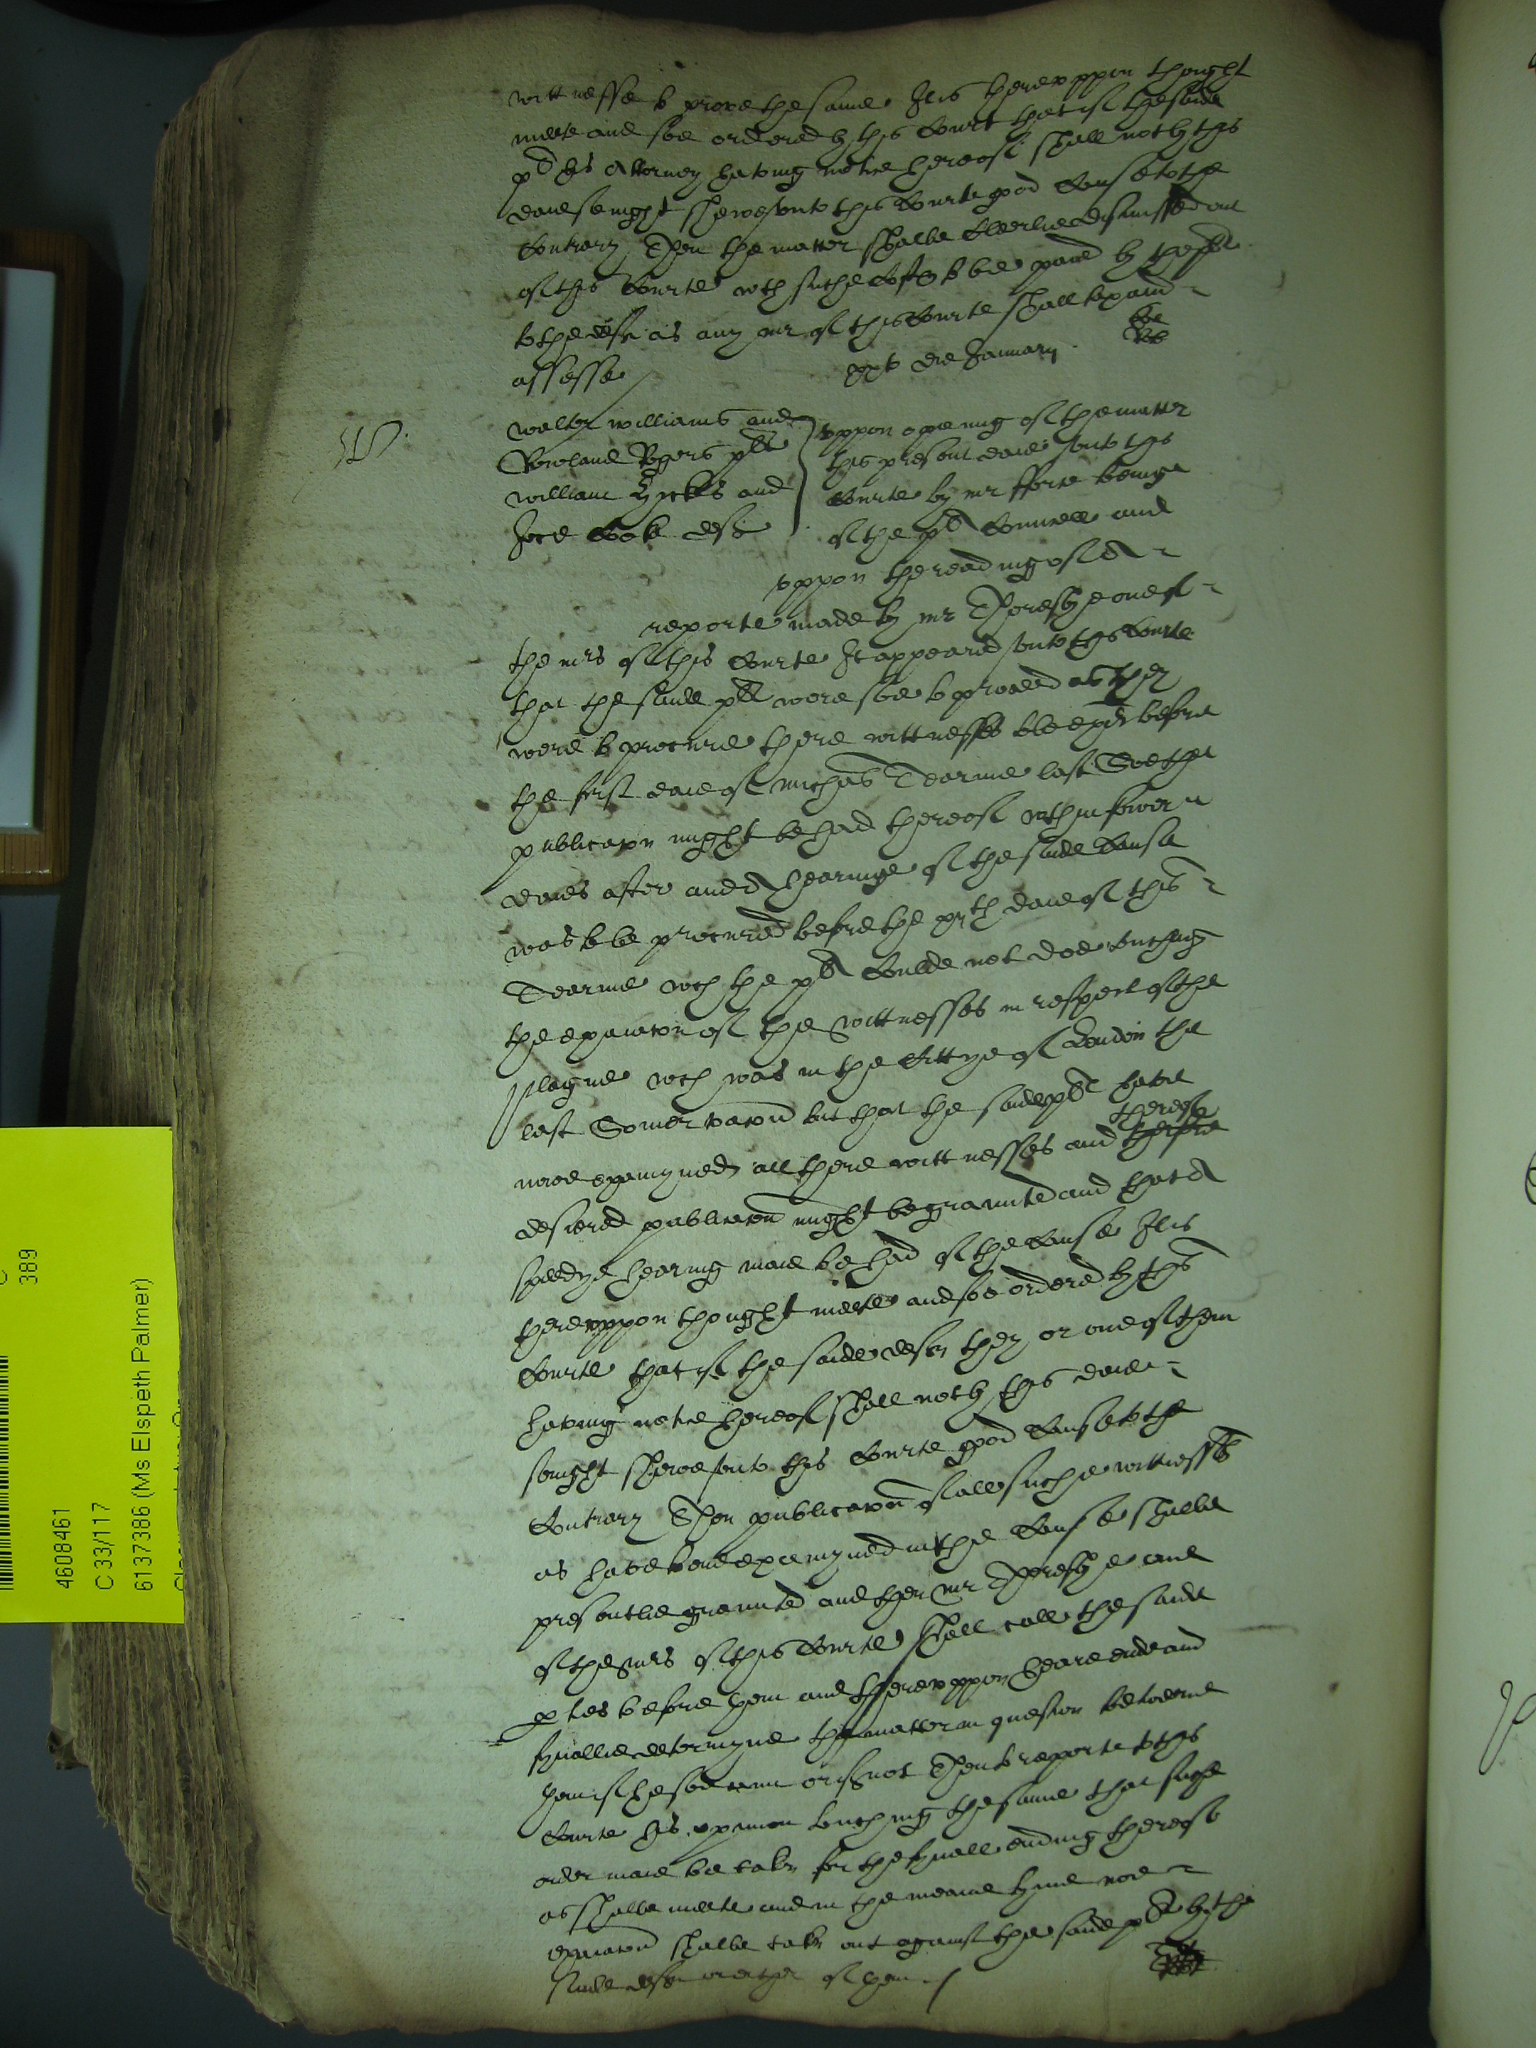 wittnesse to prove the same It is hereuppon thought
meete and soe ordered by this Courte that if the saide
pl his Attorney having notice hereof shall not by this
daie sevnight shewe unto this Courte good Cause to the
Contrary Then the matter shalbe Clerelie dismissed out
of this Courte wth suche Costes to bee paied by the pl
to the def as any mr of this Courte shall
assesse
die January
W
Walter Williams and
Rowland Rogers pltes
William Hyckes and
Cooke def
Uppon openinge of the matter
this present daie unto this
Courte by mr beinge
of the pl Councell and
uppon the reading of A
reporte made by mr one of
the mrs of this Courte It appeared unto this Courte
that the saide pl were soe to proceed as they
were to procure there wittnesses to be exd before
the first daie of michas Tearme last Soe that
publicacon might be had thereof wthin fower
daies after and A hearinge of the saide Cause
was to be procured before the xth daie of this
Tearme wch the pl Coulde not doe touching
the exaiacon of the wittnesses in respect of the
plague wch was in the Cittye of London the
last Somer vacacon but that the saide pl have
nowe examyned all there wittnesses and therefore
desiered publicacon might be graunted and that A
speedye hearing maie be had of the Cause It is
thereuppon thought meete and soe ordered by this
Courte that if the saide defes they or one of them
having notice hereof shall not by this daie
sevnight shewe unto this Courte good Cause to the
Contrary Then publicacon of all suche wittnesses
as have bene examyned in the Cause shalbe
presentlie graunted and then mr one
of the mrs of this Courte shall call the saide
pties before him and thereuppon heare ende and
fynallie determyne the matter in question betweene
them if he soe cann or if not Then to reporte to this
Courte his opinion touching the same that suche
order maie be taken for the fynall ending thereof
as shalbe meete and in the meane tyme noe
shalbe taken out against the saide pl by the
saide def or either of them
4608461
C 33/117
6137386 (Ms Elspeth Palmer)
389